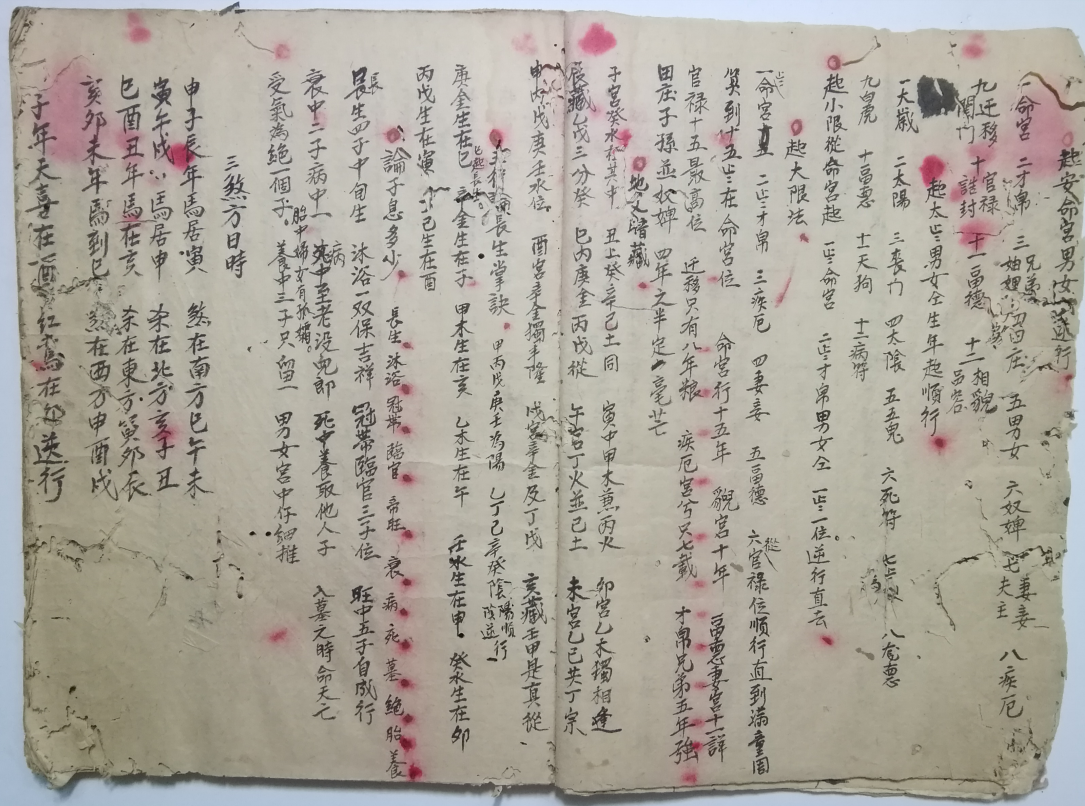 起安命宮男女逆行
一命宮 二才帛 三兄弟 四田庄 五男女 六奴婢 七妻妾 八疾厄
九迁移 十官禄 十一畐德 十二相貌
一大歲 二太陽 三丧門 四太陰 五五鬼 六死符 八龙惪
九白虎 十畐惪 十一天狗 十二病符
起小限從命宮起 一岁一命宮 二岁才帛男女仝 一岁一位逆行直去
起大限法
一命宮 二岁才帛 三疾厄 四妻妾 五畐德 六官禄位順行直到滿童固
筭到十五岁在命宮位 命宮行十五年 貌宮十年 畐惪妻宮十一詳
官禄十五最高位 迁移只有八年粮 疾厄宮兮只七載 才帛兄弟五年強
田庄子孫並奴婢 四年之半定毫芒
地支暗藏
子宮癸水在其中 丑上癸辛己土同 寅中甲木兼丙火 卯宮乙木獨相逢
辰藏乙戊三分癸 巳丙庚金丙戊從 午宮丁火並己土 未宮乙己共丁宗
申內戊庚壬水位 酉宮辛金獨丰隆 戌宮辛金及丁戊 亥藏壬甲是真從
長生掌訣 甲丙戊庚壬為陽 乙丁己辛癸陰 陽順行 陰逆行
庚金生在巳 辛金生在子 甲木生在亥 乙木生在午 壬水生在申 癸水生在卯
丙戊生在寅 丁己生在酉
論子息多少 長生 沐浴 冠帶 臨官 帝旺 衰 病 死 墓 絕 胎 養
長生四子中旬生 沐浴一双保吉祥 冠帶臨官三子位 旺中五子自成行
衰中二子病中一 死中至老没兒郎 死中養取他人子 入墓之時命夭亡
受氣為絕一個子 胎中婦女有孤孀 養中三子只留一 男女宮中仔細推
三煞方日時
申子辰年馬居寅 煞在南方巳午未
寅午戌馬居申 杀在北方亥子丑
巳酉丑年馬在亥 杀在東方寅卯辰
亥卯未年馬到巳 煞在西方申酉戌
子年天喜在酉 紅鸞在卯逆行